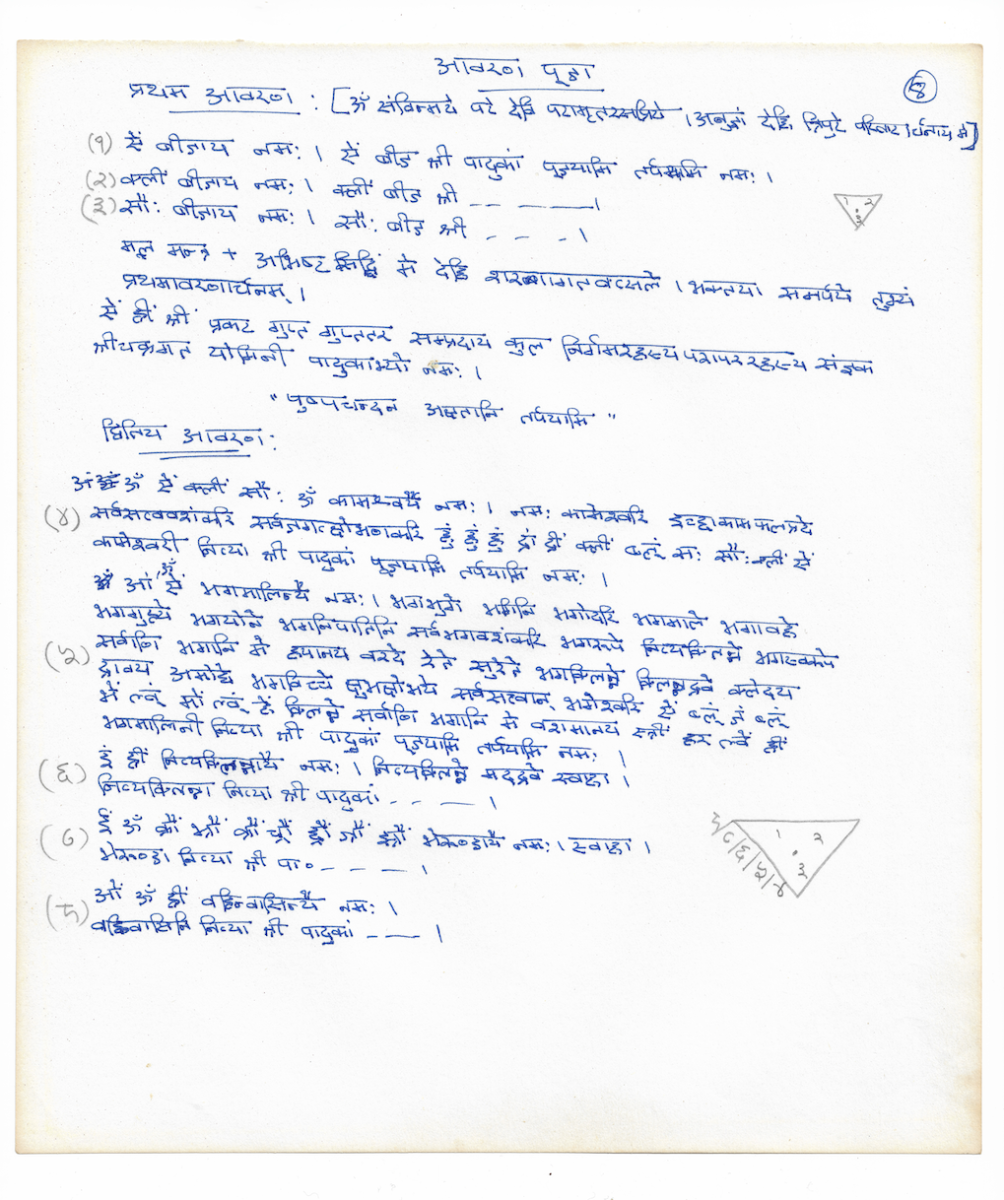 आवरण पूजा
प्रथम आवरण : [ॐ संविन्मये परे देवि परामृतरसप्रिये । अनुज्ञां देहि त्रिपुरे परिवारार्चनाय मे]
(१) ऐं बीजाय नमः । ऐं बीज श्री पादुकां पूजयामि तर्पयामि नमः ।
(२) क्लीं बीजाय नमः । क्लीं बीज श्री -- ——— ।
(३) सौः बीजाय नमः । सौः बीज श्री - - - ।
१ २
३
मूल मन्त्र + अभिष्टसिद्धिं मे देहि शरणागतवत्सले । भक्तया समर्पये तुभ्यं
प्रथमावरणार्चनम् ।
ऐं ह्रीं श्रीं प्रकट गुप्त गुप्ततर सम्प्रदाय कुल निर्गमरहस्य परापररहस्य संज्ञक
श्रीचक्रगत योगिनी पादुकाभ्यो नमः ।
"पुष्पचन्दन अक्षतानि तर्पयामि"
द्वितिय आवरण :
ॐ ऐं क्लीं सौः ॐ कामेश्वर्यै नमः । नमः कामेश्वरि इच्छाकामफलप्रदे
(४) सर्वसत्ववशंकरि सर्वजगत्क्षोभणकरि हुं हुं हुं द्रां द्रीं क्लीं ब्लूं सः सौः क्लीं ऐं
कामेश्वरी नित्या श्री पादुकां पूजयामि तर्पयामि नमः ।
आं ॐ ऐं भगमालिन्यै नमः । भगभुगे भगिनि भगोदरि भगमाले भगावहे
भगगुह्ये भगयोने भगनिपातिनि सर्वभगवशंकरि भगरूपे नित्यक्लिन्ने भगस्वरूपे
(५) सर्वाणि भगानि मे ह्यानय वरदे रेते सुरेते भगक्लिन्ने क्लिन्नद्रवे क्लेदय
द्रावय अमोघे भगविच्चे क्षुभक्षोभये सर्वसत्वान् भगेश्वरि ऐं ब्लूं जं ब्लूं
में ब्लूं मों ब्लूं हें क्लिन्ने सर्वाणि भगानि मे वशमानय स्त्रीं हर ब्लें ह्रीं
भगमालिनी नित्या श्री पादुकां पूजयामि तर्पयामि नमः ।
(६) इं ह्रीं नित्यक्लिन्नायै नमः । नित्यक्लिन्ने मदद्रवे स्वाहा ।
नित्यक्लिन्ना नित्या श्री पादुकां - - — ।
(७) ईं ॐ क्रौं भ्रौं क्रौं झ्रौं ज्रौं भेरुण्डायै नमः । स्वाहा ।
भेरुण्डा नित्या श्री पा० - - - — ।
१ २
३
८/६/५/४
(८) ॐ ह्रीं वह्निवासिन्यै नमः ।
वह्निवासिनि नित्या श्री पादुकां - — ।